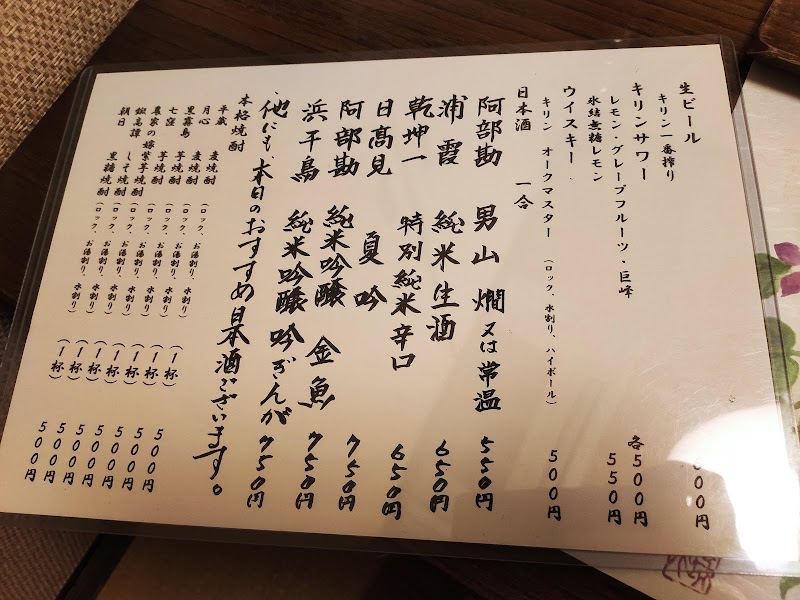 生ビール
キリン一番搾り 00円
キリンサワー
レモン・グレープフルーツ・巨峰 各500円
氷結無糖レモン 550円
ウイスキー
キリン オークマスター (ロック、水割り、ハイボール) 500円
日本酒 一合
阿部勘 男山 燗又は常温 550円
浦霞 純米生酒 650円
乾坤一 特別純米辛口 650円
日高見 夏吟 750円
阿部勘 純米吟醸 金魚 750円
浜千鳥 純米吟醸 吟ぎんが 750円
他にも、本日のおすすめ日本酒ございます。
本格焼酎
平蔵 麦焼酎 (ロック、お湯割り、水割り) (一杯) 500円
月心 麦焼酎 (ロック、お湯割り、水割り) (一杯) 500円
黒霧島 芋焼酎 (ロック、お湯割り、水割り) (一杯) 500円
七窪 芋焼酎 (ロック、お湯割り、水割り) (一杯) 500円
農家の嫁 紫芋焼酎 (ロック、お湯割り、水割り) (一杯) 500円
鍛高譚 しそ焼酎 (ロック、お湯割り、水割り) (一杯) 500円
朝日 黒糖焼酎 (ロック、お湯割り、水割り) (一杯) 500円